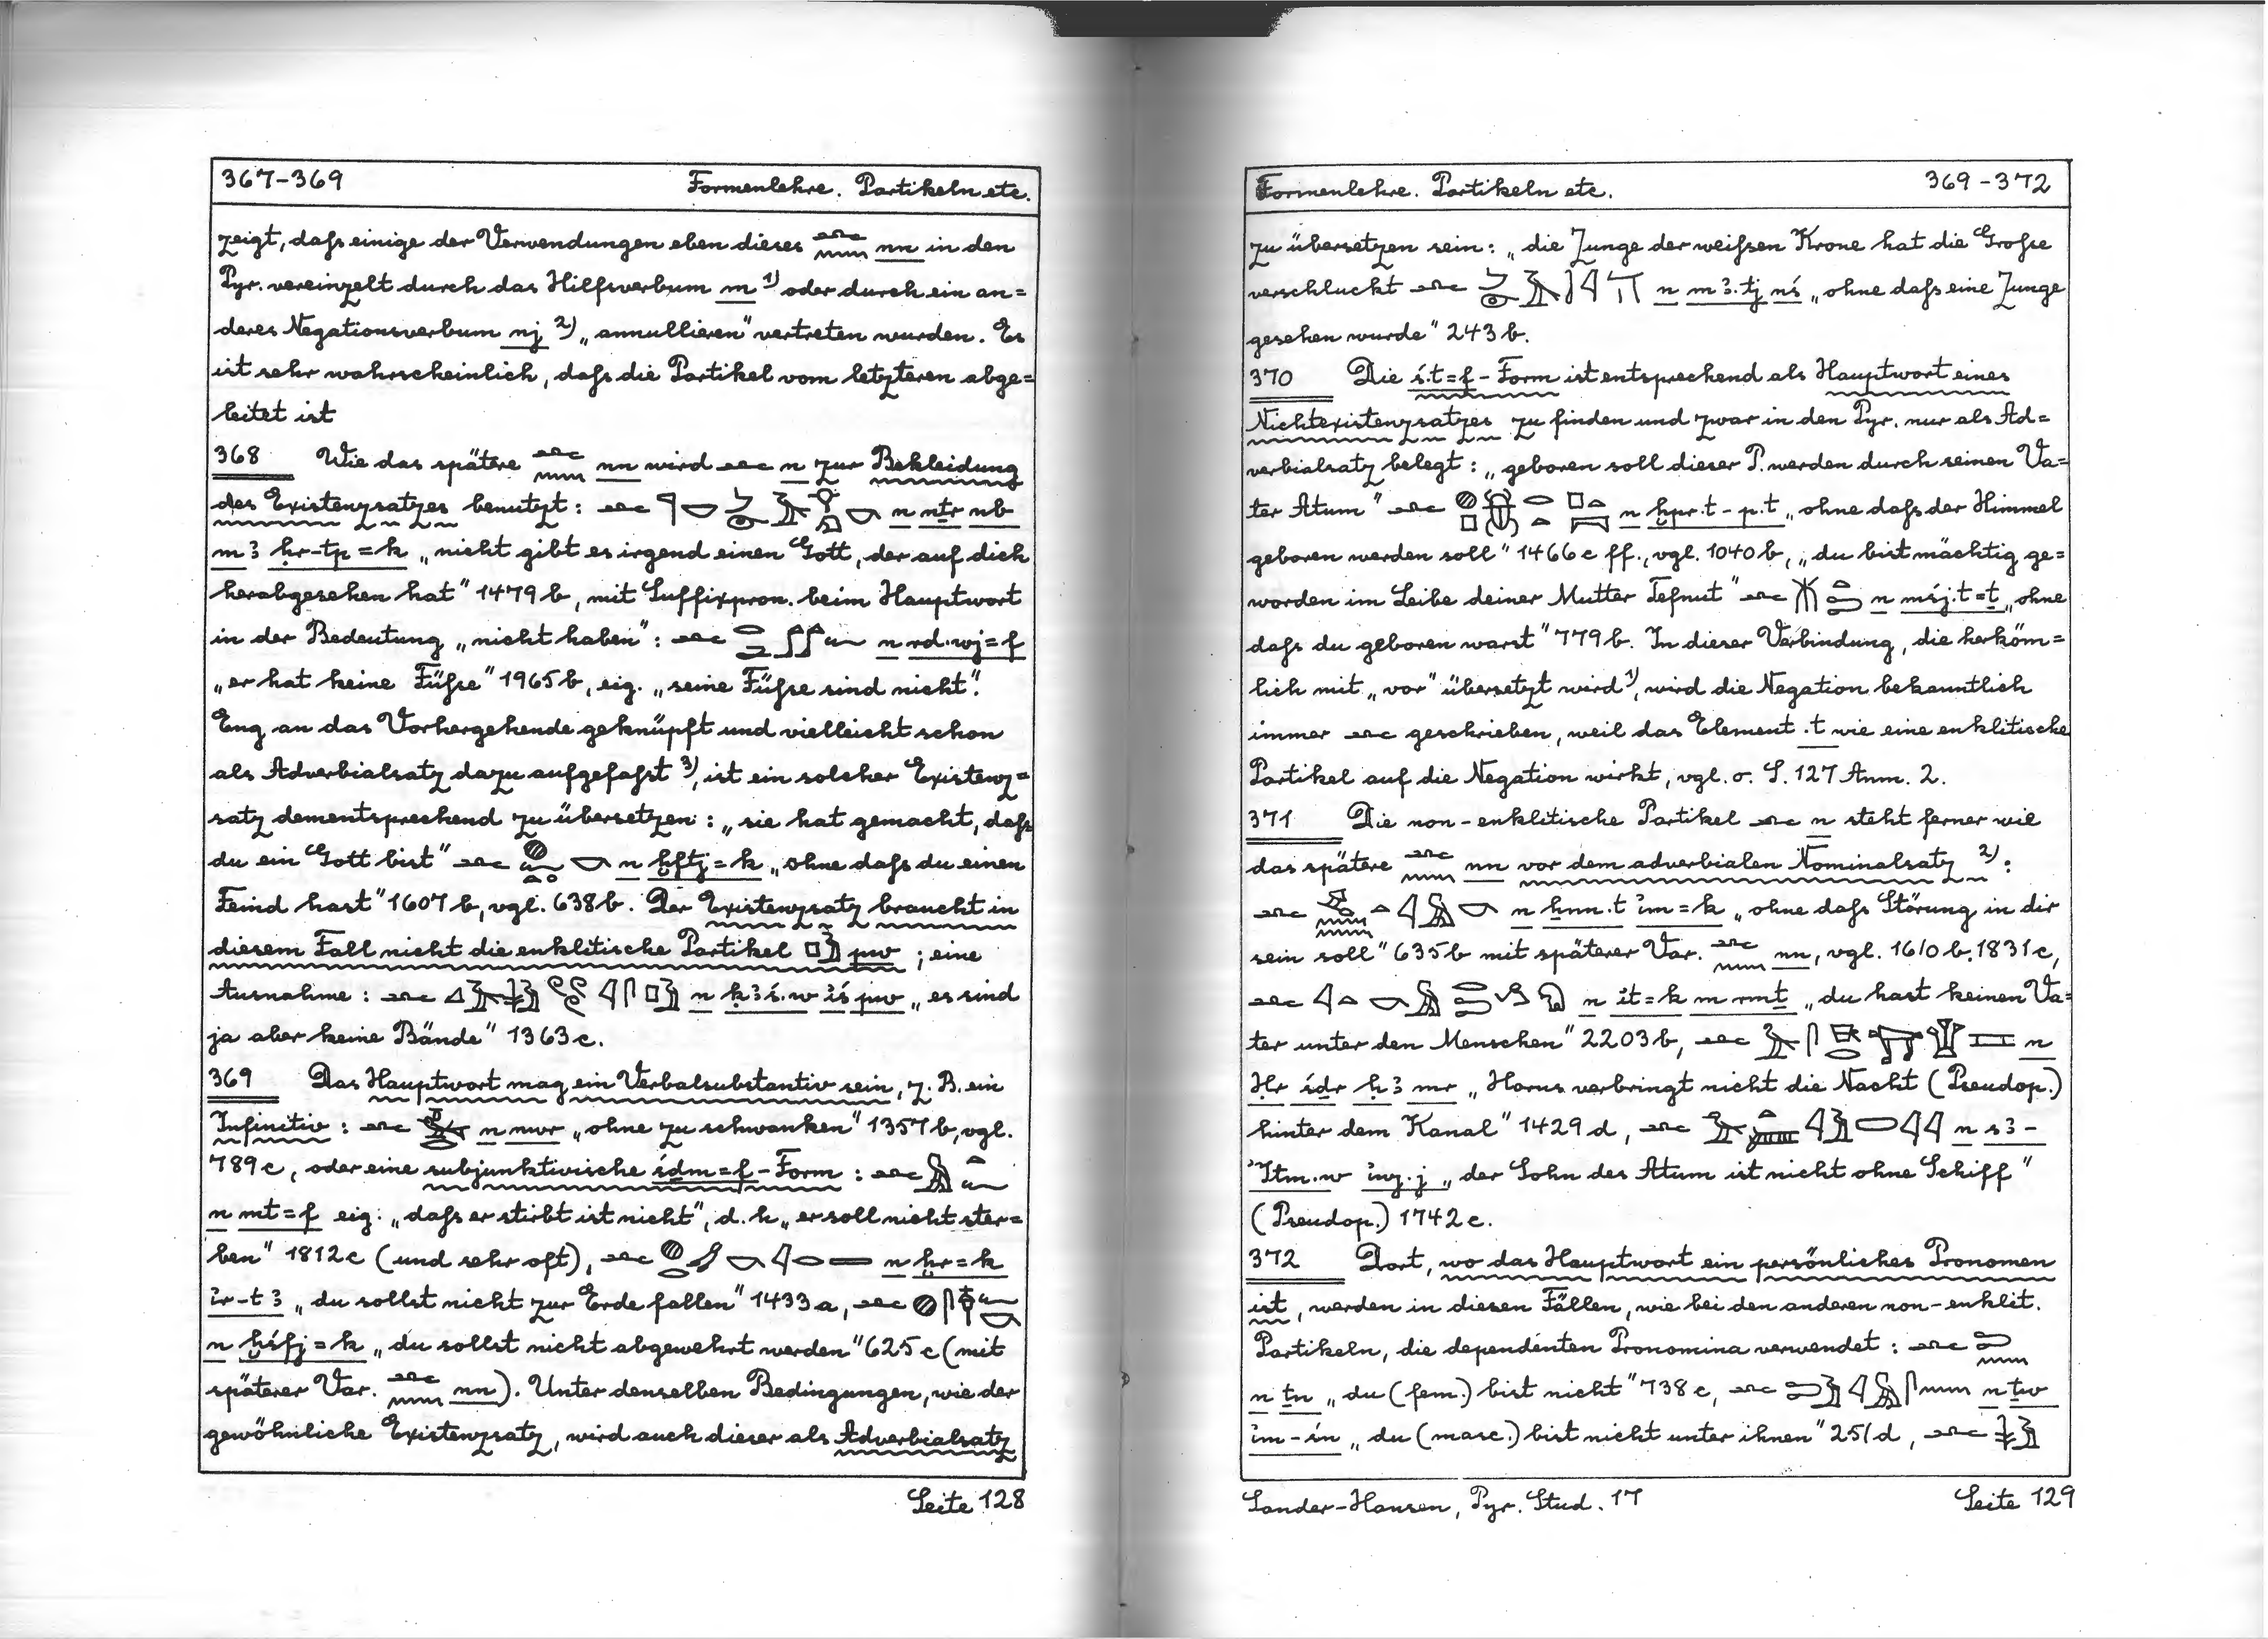 367-369 Formenlehre. Partikeln etc.
zeigt, daſs einige der Verwendungen eben dieses 𓂜𓈖 nn in den
Pyr. vereinzelt durch das Hilfsverbum m ¹⁾ oder durch ein an=
deres Negationsverbum nj ²⁾ „annullieren" vertreten wurden. Es
ist sehr wahrscheinlich, daſs die Partikel vom letzteren abge=
leitet ist
368 Wie das spätere 𓂜𓈖 nn wird 𓂜 n zur Bekleidung
des Existenzsatzes benutzt: 𓂜 n nṯr nb
mꜣ ḥr-tp=k „nicht gibt es irgend einen Gott, der auf dich
herabgesehen hat" 1479 b, mit Suffixpron. beim Hauptwort
in der Bedeutung „nicht haben": 𓂜 n rd.wj=f
„er hat keine Füſse" 1965 b, eig. „seine Füſse sind nicht".
Eng an das Vorhergehende geknüpft und vielleicht schon
als Adverbialsatz dazu aufgefaſst ³⁾, ist ein solcher Existenz=
satz dementsprechend zu übersetzen: „sie hat gemacht, daſs
du ein Gott bist" 𓂜 n ḫftj=k „ohne daſs du einen
Feind hast" 1607 b, vgl. 638 b. Der Existenzsatz braucht in
diesem Fall nicht die enklitische Partikel 𓊪𓅱 pw ; eine
Ausnahme: 𓂜 n ḳꜣś.w ı͗ś pw „es sind
ja aber keine Bände" 1363 c.
369 Das Hauptwort mag ein Verbalsubstantiv sein, z. B. ein
Infinitiv: 𓂜 n nwr „ohne zu schwanken" 1357 b, vgl.
789 c, oder eine subjunktivische śḏm=f-Form: 𓂜
n mt=f eig. „daſs er stirbt ist nicht", d. h. „er soll nicht ster=
ben" 1812 c (und sehr oft), 𓂜 n ḫr=k
ı͗r-tꜣ „du sollst nicht zur Erde fallen" 1433 a, 𓂜
n ḫśfj=k „du sollst nicht abgewehrt werden" 625 c (mit
späterer Var. 𓂜𓈖 nn). Unter denselben Bedingungen, wie der
gewöhnliche Existenzsatz, wird auch dieser als Adverbialsatz
Seite 128
Formenlehre. Partikeln etc. 369-372
zu übersetzen sein: „die Zunge der weiſsen Krone hat die Groſse
verschluckt 𓂜 n mꜣ.tj nś „ohne daſs eine Zunge
gesehen wurde" 243 b.
370 Die ś.t=f-Form ist entsprechend als Hauptwort eines
Nichtexistenzsatzes zu finden und zwar in den Pyr. nur als Ad=
verbialsatz belegt: „geboren soll dieser P. werden durch seinen Va=
ter Atum" 𓂜 n ḫpr.t-p.t „ohne daſs der Himmel
geboren werden soll" 1466 c ff., vgl. 1040 b, „du bist mächtig ge=
worden im Leibe deiner Mutter Tefnut" 𓂜 n mśj.t=ṯ „ohne
daſs du geboren warst" 779 b. In dieser Verbindung, die herköm=
lich mit „vor" übersetzt wird ¹⁾, wird die Negation bekanntlich
immer 𓂜 geschrieben, weil das Element .t wie eine enklitische
Partikel auf die Negation wirkt, vgl. o. S. 127 Anm. 2.
371 Die non-enklitische Partikel 𓂜 n steht ferner wie
das spätere 𓂜𓈖 nn vor dem adverbialen Nominalsatz ²⁾:
𓂜 n ẖnn.t ı͗m=k „ohne daſs Störung in dir
sein soll" 635 b mit späterer Var. 𓂜𓈖 nn, vgl. 1610 b, 1831 c,
𓂜 n it=k m rmṯ „du hast keinen Va=
ter unter den Menschen" 2203 b, 𓂜 n
Ḥr śḏr ḥꜣ mr „Horus verbringt nicht die Nacht (Pseudop.)
hinter dem Kanal" 1429 d, 𓂜 n sꜣ-
ʾItm.w ı͗wj.j „der Sohn des Atum ist nicht ohne Schiff"
(Pseudop.) 1742 c.
372 Dort, wo das Hauptwort ein persönliches Pronomen
ist, werden in diesen Fällen, wie bei den anderen non-enklit.
Partikeln, die dependenten Pronomina verwendet: 𓂜 𓍿𓈖
n ṯn „du (fem.) bist nicht" 738 c, 𓂜 n ṯw
ı͗m-śn „du (masc.) bist nicht unter ihnen" 251 d, 𓂜 𓇓𓅱
Sander-Hansen, Pyr. Stud. 17 Seite 129